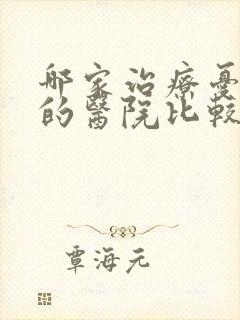 哪家治療憂
的醫院比較
覃海元